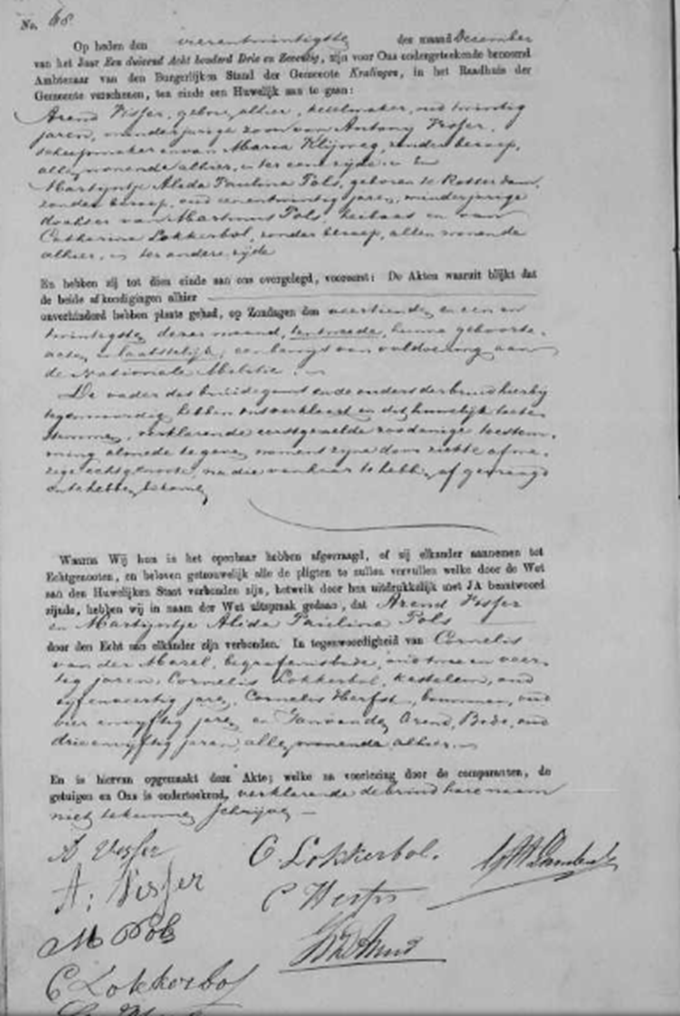 No. 68.
Op heden den vierentwintigste der maand December
van het Jaar Een duizend Acht honderd Drie en Zeventig, zijn voor Ons ondergeteekende benoemd
Ambtenaar van den Burgerlijken Stand der Gemeente Kralingen, in het Raadhuis der
Gemeente verschenen, ten einde een Huwelijk aan te gaan:
Arend Visser, geboren alhier, ketelmaker, oud twintig
jaren, minderjarige zoon van Antony Visser,
scheepmaker en van Maria Kleijweg, zonder beroep,
allen wonende alhier, ter eene zijde. En
Martijntje Alida Paulina Pols, geboren te Rotterdam,
zonder beroep, oud eenentwintig jaren, minderjarige
dochter van Martinus Pols, heibaas en van
Catharina Lokkerbol, zonder beroep, allen wonende
alhier, ter andere zijde
En hebben zij tot dien einde aan ons overgelegd, vooreerst: De Akten waaruit blijkt dat
de beide afkondigingen alhier
onverhinderd hebben plaats gehad, op Zondagen den veertiende en een en
twintigste dezer maand, ten tweede, hunne geboorte-
acten en laatstelijk, een bewijs van voldoening aan
de Nationale Militie.
De vader des bruidegoms en de ouders der bruid hierbij
tegenwoordig hebben ons verklaard in dit huwelijk toete-
stemmen, verklarende eerstgemelde zoodanige toestem-
ming alsmede te geven namens zijne door ziekte afwe-
zige echtgenoote, na die van haar te hebben afgevraagd
en te hebben bekomen
Waarna Wij hun in het openbaar hebben afgevraagd, of zij elkander aannemen tot
Echtgenooten, en beloven getrouwelijk alle de pligten te zullen vervullen welke door de Wet
aan den Huwelijken Staat verbonden zijn, hetwelk door hen uitdrukkelijk met JA beantwoord
zijnde, hebben wij in naam der Wet uitspraak gedaan, dat Arend Visser
en Martijntje Alida Paulina Pols
door den Echt aan elkander zijn verbonden. In tegenwoordigheid van Cornelis
van der Marel, begrafenisbode, oud twee en veer-
tig jaren, Cornelis Lokkerbol, kastelein, oud
vijfenveertig jaren, Cornelis Herfst, bouwman, oud
vier en vijftig jaren en Jan van den Arend, Bode, oud
drie en vijftig jaren, allen wonende alhier.
En is hiervan opgemaakt deze Akte; welke na voorlezing door de comparanten, de
getuigen en Ons is onderteekend, verklarende de bruid hare naam
niet te kunnen schrijven
A Visser
A: Visser
M Pols
C Lokkerbol
C. Lokkerbol.
C Herfst